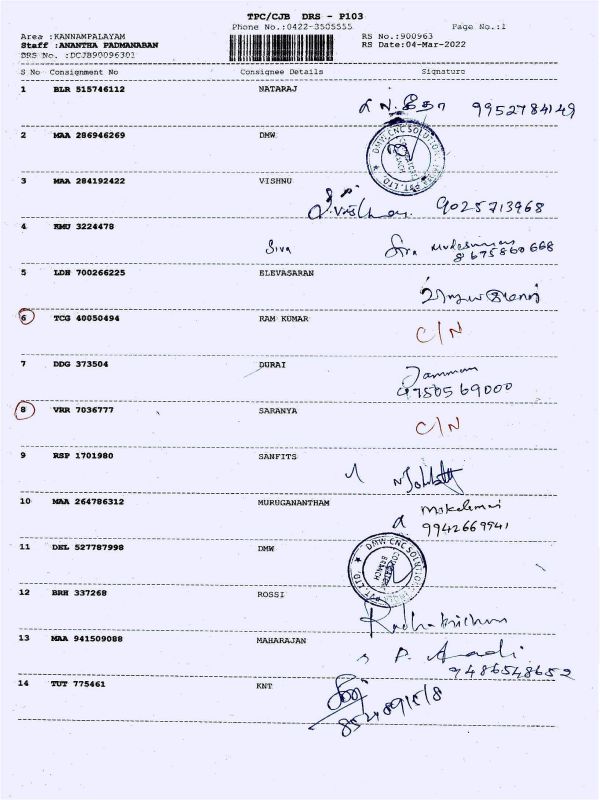 TPC/CJB DRS - P103
Phone No.:0422-3505555 Page No.:1
Area :KANNAMPALAYAM RS No.:900963
Staff :ANANTHA PADMANABAN RS Date:04-Mar-2022
DRS No. :DCJB90096301
S No Consignment No Consignee Details Signature
1 BLR 515746112 NATARAJ
9952784149
2 MAA 286946269 DMW
DMW-CNC SOLUTION
3 MAA 284192422 VISHNU
9025713968
4 KMU 3224478
Siva Siva
8675860668
5 LDH 700266225 ELEVASARAN
6 TCG 40050494 RAM KUMAR
C/N
7 DDG 373504 DURAI
9750569000
8 VRR 7036777 SARANYA
C/N
9 RSP 1701980 SANFITS
10 MAA 264786312 MURUGANANTHAM
9942669941
11 DEL 527787998 DMW
DMW-CNC SOLUTION
BRANCH
12 BRH 337268 ROSSI
Radhakrishnan
13 MAA 941509088 MAHARAJAN
P.
9486548652
14 TUT 775461 KNT